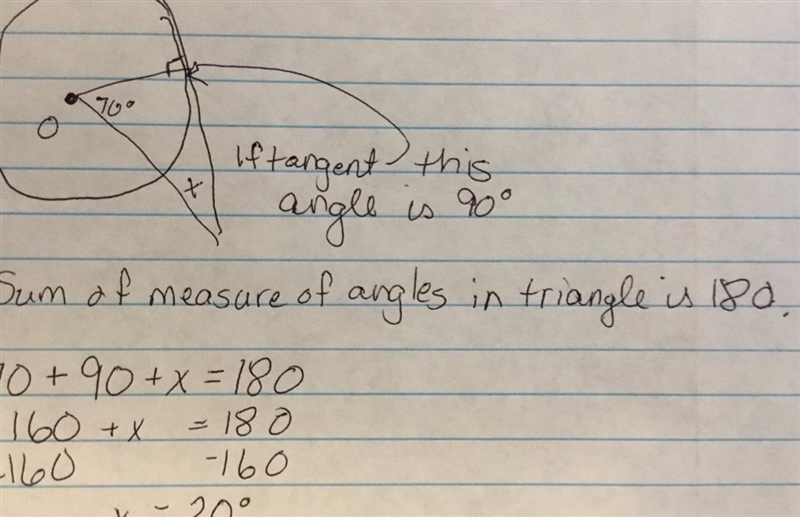 70°
O
x
If tangent this
angle is 90°
Sum of measure of angles in triangle is 180.
70 + 90 + x = 180
160 + x = 180
-160 -160
x = 20°